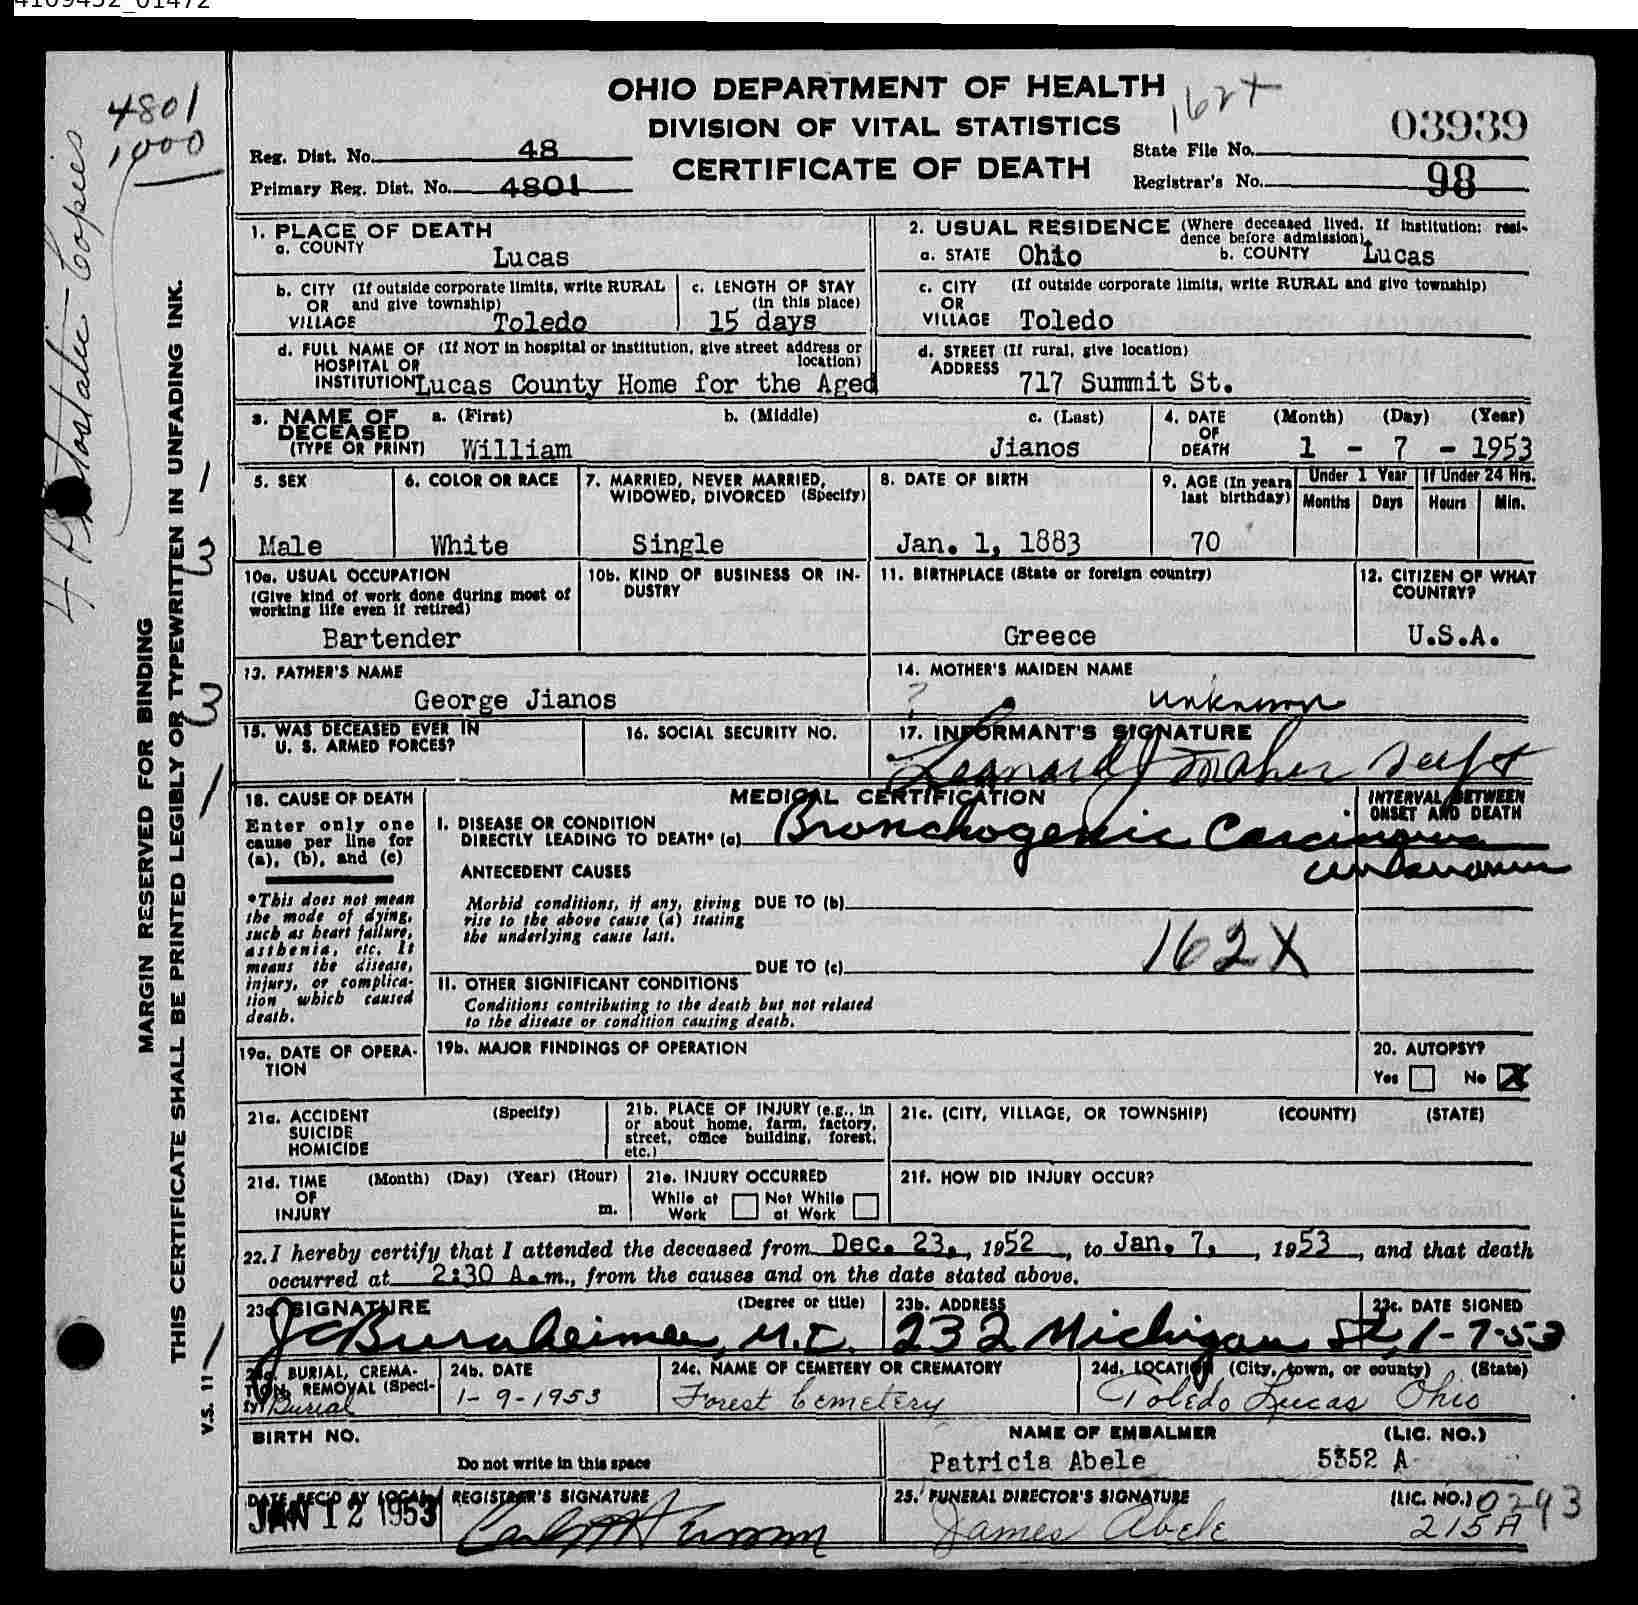 4109432_01472
OHIO DEPARTMENT OF HEALTH
DIVISION OF VITAL STATISTICS
CERTIFICATE OF DEATH
162X
03939
Reg. Dist. No. 48
Primary Reg. Dist. No. 4801
State File No.
Registrar's No. 98
4801
1000
4 Photostatic Copies
MARGIN RESERVED FOR BINDING
THIS CERTIFICATE SHALL BE PRINTED LEGIBLY OR TYPEWRITTEN IN UNFADING INK.
V.S. 11
1. PLACE OF DEATH
a. COUNTY Lucas
b. CITY (If outside corporate limits, write RURAL
OR and give township)
VILLAGE Toledo
c. LENGTH OF STAY
(in this place)
15 days
d. FULL NAME OF (If NOT in hospital or institution, give street address or
HOSPITAL OR location)
INSTITUTION Lucas County Home for the Aged
2. USUAL RESIDENCE (Where deceased lived. If institution: resi-
dence before admission).
a. STATE Ohio b. COUNTY Lucas
c. CITY (If outside corporate limits, write RURAL and give township)
OR
VILLAGE Toledo
d. STREET (If rural, give location)
ADDRESS
717 Summit St.
3. NAME OF a. (First) b. (Middle) c. (Last)
DECEASED
(TYPE OR PRINT) William Jianos
4. DATE (Month) (Day) (Year)
OF
DEATH 1 - 7 - 1953
5. SEX
Male
6. COLOR OR RACE
White
7. MARRIED, NEVER MARRIED,
WIDOWED, DIVORCED (Specify)
Single
8. DATE OF BIRTH
Jan. 1, 1883
9. AGE (In years
last birthday)
70
Under 1 Year
Months Days
If Under 24 Hrs.
Hours Min.
10a. USUAL OCCUPATION
(Give kind of work done during most of
working life even if retired)
Bartender
10b. KIND OF BUSINESS OR IN-
DUSTRY
11. BIRTHPLACE (State or foreign country)
Greece
12. CITIZEN OF WHAT
COUNTRY?
U.S.A.
13. FATHER'S NAME
George Jianos
14. MOTHER'S MAIDEN NAME
? unknown
15. WAS DECEASED EVER IN
U. S. ARMED FORCES?
16. SOCIAL SECURITY NO.
17. INFORMANT'S SIGNATURE
Leonard J Maher Supt
18. CAUSE OF DEATH
Enter only one
cause per line for
(a), (b), and (c)
*This does not mean
the mode of dying,
such as heart failure,
asthenia, etc. It
means the disease,
injury, or complica-
tion which caused
death.
MEDICAL CERTIFICATION
INTERVAL BETWEEN
ONSET AND DEATH
I. DISEASE OR CONDITION
DIRECTLY LEADING TO DEATH* (a) Bronchogenic Carcinoma
unknown
ANTECEDENT CAUSES
Morbid conditions, if any, giving DUE TO (b)
rise to the above cause (a) stating
the underlying cause last.
162X
DUE TO (c)
II. OTHER SIGNIFICANT CONDITIONS
Conditions contributing to the death but not related
to the disease or condition causing death.
19a. DATE OF OPERA-
TION
19b. MAJOR FINDINGS OF OPERATION
20. AUTOPSY?
Yes No X
21a. ACCIDENT (Specify)
SUICIDE
HOMICIDE
21b. PLACE OF INJURY (e.g., in
or about home, farm, factory,
street, office building, forest,
etc.)
21c. (CITY, VILLAGE, OR TOWNSHIP) (COUNTY) (STATE)
21d. TIME (Month) (Day) (Year) (Hour)
OF
INJURY m.
21e. INJURY OCCURRED
While at Not While
Work at Work
21f. HOW DID INJURY OCCUR?
22. I hereby certify that I attended the deceased from Dec. 23, 1952, to Jan. 7, 1953, and that death
occurred at 2:30 A.m., from the causes and on the date stated above.
23a. SIGNATURE (Degree or title)
J C Burnheimer, M.D.
23b. ADDRESS
232 Michigan St,
23c. DATE SIGNED
1-7-53
24a. BURIAL, CREMA-
TION, REMOVAL (Speci-
fy) Burial
24b. DATE
1-9-1953
24c. NAME OF CEMETERY OR CREMATORY
Forest Cemetery
24d. LOCATION (City, town, or county) (State)
Toledo Lucas Ohio
BIRTH NO.
Do not write in this space
NAME OF EMBALMER (LIC. NO.)
Patricia Abele 5352 A
DATE REC'D BY LOCAL
JAN 12 1953
REGISTRAR'S SIGNATURE
25. FUNERAL DIRECTOR'S SIGNATURE (LIC. NO.) 0293
James Abele 215A